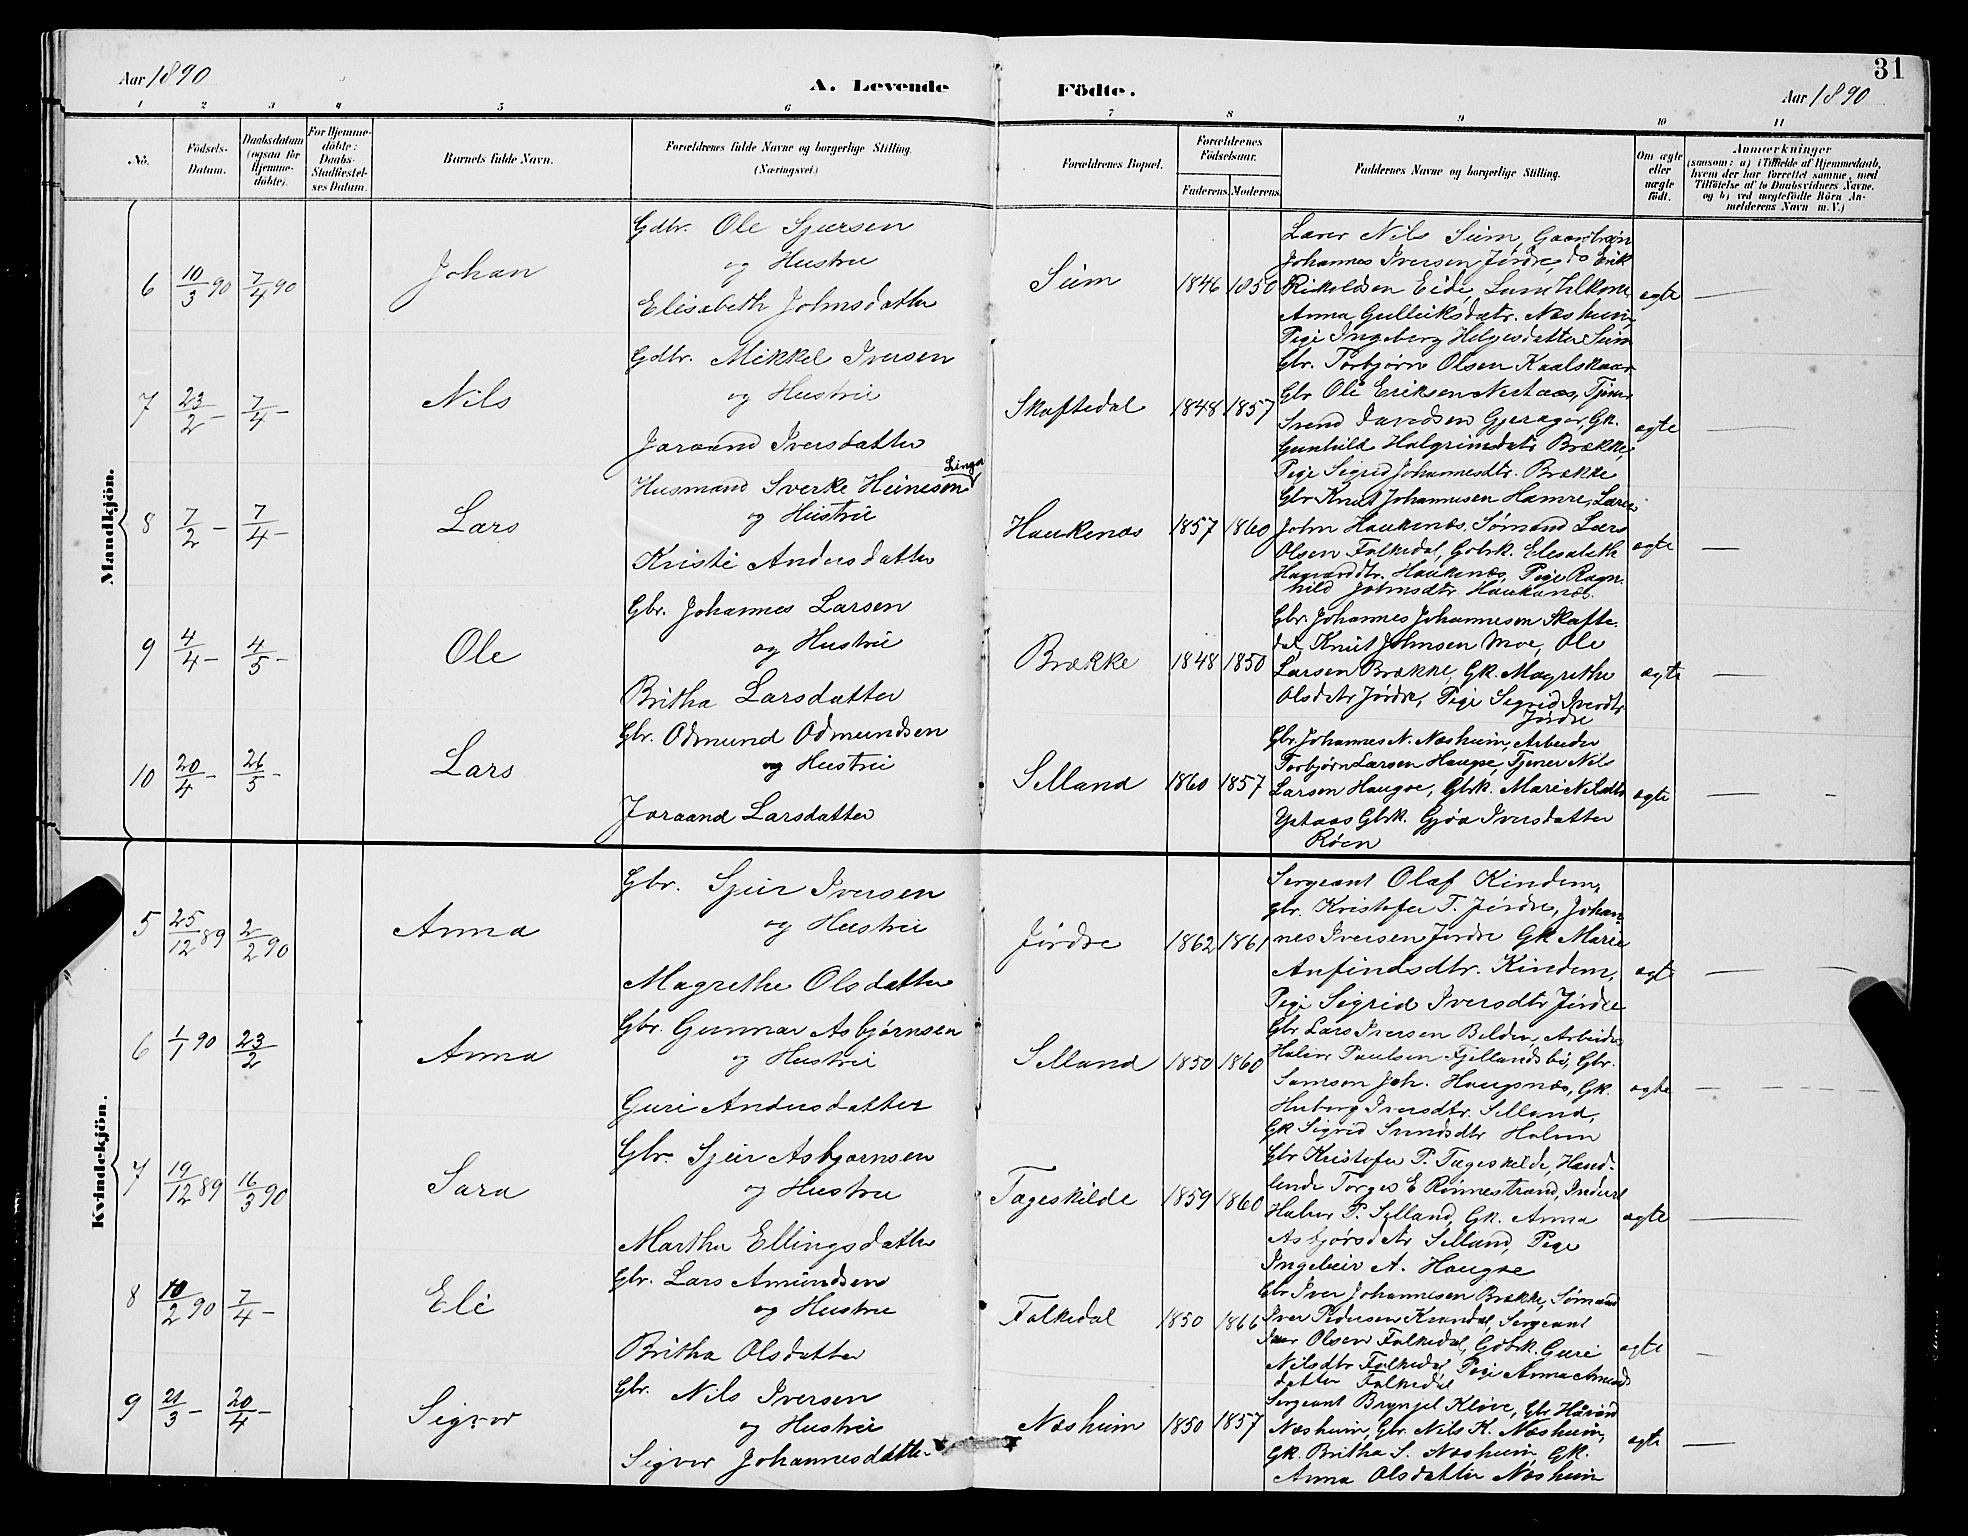 31
Aar 1890
A. Levende Födte.
Aar 1890
1 2 3 4 5 6 7 8 9 10 11
No.
Födsels-Datum.
Daabsdatum (ogsaa for Hjemme-döbte).
For Hjemme-döbte: Daabs-Stadfæstel-ses Datum.
Barnets fulde Navn.
Forældrenes fulde Navne og borgerlige Stilling.
(Næringsvei.)
Forældrenes Bopæl.
Forældrenes Födselsaar.
Faderens. Moderens.
Faddernes Navne og borgerlige Stilling.
Om ægte eller uægte födt.
Anmærkninger
(saasom: a) i Tilfælde af Hjemmedaab,
hvem der har forrettet samme, med
Tilföielse af to Daabsvidners Navne,
og b) ved uægtefödte Börn An-
melderens Navn m. V.)
Mandkjön.
6 10/3 90 7/4 90 Johan
Gdbr. Ole Sjursen
og Hustru
Elisabeth Johnsdatter
Siim 1846 1850
Lærer Nils Siim, Gaardbrøn
Johannes Iversen Jördre, do Erik
Rikoldsen Eide,
Anna Gulleiksdatr. Næsheim,
Pige Ingeborg Helgesdatter Siim
ægte
7 23/2 - 7/4 - Nils
Gdbr. Mikkel Iversen
og Hustru
Joraand Iversdatter
Skaftedal 1848 1857
Gbr. Torbjørn Olsen Kaalskaar
Gbr Ole Eriksen Nestaas, Tjener
Svend Davidsen Gjerager, Gk.
Gunhild Halgrimsdatr Brække,
Pige Sigrid Johannesdtr. Brække
ægte
8 7/2 - 7/4 - Lars
Husmand Sverke Heinesen Linga
og Hustru
Kristi Andersdatter
Haukenæs 1857 1860
Gbr Knut Johannesen Hamre, Lærer
John Haukenæs, Sømand Lars
Olsen Folkedal, Gbrk. Elisabeth
Haavarddtr. Haukenæs, Pige Ragn-
hild Johnsdtr Haukenæs.
ægte
9 4/4 - 4/5 - Ole
Gbr. Johannes Larsen
og Hustru
Britha Larsdatter
Brække 1848 1850
Gbr Johannes Johannesen Skafte-
dal, Knut Johnsen Moe, Ole
Larsen Brække, Gk. Magrethe
Olsdatr Jördre, Pige Sigrid Iversdtr
Jördre
ægte
10 20/4 - 26/5 - Lars
Gbr. Odmund Odmundsen
og Hustru
Joraand Larsdatter
Selland 1860 1857
Gbr. Johannes N. Næsheim, Arbeider
Torbjørn Larsen Haugse, Tjener Nils
Larsen Haugse, Gbrk. Mari Nilsdtr
Ystaas Gbrk. Gjöa Iversdatter
Röen
ægte
Kvindekjön.
5 25/12 89 2/2 90 Anna
Gbr. Sjur Iversen
og Hustru
Magrethe Olsdatter
Jördre 1862 1861
Sergeant Olaf Kindem,
gbr. Kristofer T. Jördre, Johan-
nes Iversen Jördre Gk Marie
Anfindsdtr. Kindem,
Pige Sigrid Iversdtr Jördre
ægte
6 1/1 90 23/2 Anna
Gbr. Gunnar Asbjörnsen
og Hustru
Guri Andersdatter
Selland 1850 1860
Gbr Lars Iversen Belden, Arbeider
Halvor Paulsen Fjellandsbö, Gbr.
Samson Joh. Haugsnæs, Gk.
Herborg Iversdtr. Selland,
Gk Sigrid Svendsdtr Holven
ægte
7 19/12 89 16/3 90 Sara
Gbr. Sjur Asbjørnsen
og Hustru
Martha Ellingsdatter
Tægeskilde 1859 1860
Gbr Kristofer P. Tægeskilde, Hand-
lende Torges E Rönnestrand, Inderst
Halvor P. Selland, Gk. Anna
Asbjörsdatr Selland, Pige
Ingebeir A. Haugse
ægte
8 10/2 90 7/4 - Eli
Gbr. Lars Amundsen
og Hustru
Britha Olsdatter
Folkedal 1850 1866
Gbr Iver Johannesen Brække, Sømand
Iver Pedersen Kvandal, Sergeant
Iver Olsen Folkedal, Gdbrk. Guri
Nilsdtr Folkedal Pige Anna Amunds
datter Folkedal
ægte
9 21/3 - 20/4 - Sigvor
Gbr. Nils Iversen
og Hustru
Sigvor Johannesdatter
Næsheim 1850 1857
Sergeant Brynjel Klöve, Gbr Håvard
Næsheim, Gbr. Nils K. Næsheim,
Gk. Britha S. Næsheim, Gk.
Anna Olsdatter Næsheim
ægte